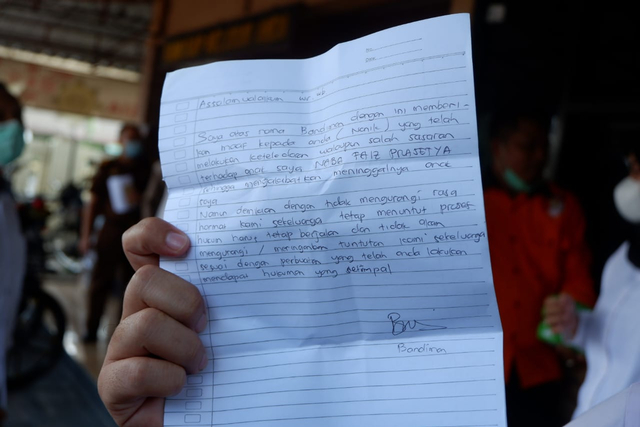 No.
Date.
Assalamualaikum wr. wb
Saya atas nama Bandiman dengan ini memberi-
kan maaf kepada anda (Nanik) yang telah
melakukan keteledoran walaupun salah sasaran
terhadap anak saya NABA FAIZ PRASETYA
hingga mengakibatkan meninggalnya anak
saya
Namun demikian dengan tidak mengurangi rasa
hormat kami sekeluarga tetap menuntut proses
hukum harus tetap berjalan dan tidak akan
mengurangi / meringankan tuntutan kami sekeluarga
sesuai dengan perbuatan yang telah anda lakukan
mendapat hukuman yang setimpal
Bandiman